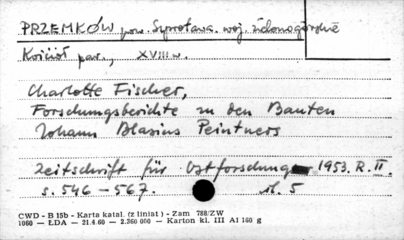 PRZEMKÓW pow. Szprotawa. woj. zielonogórskie
Kościół par., XVIII w.
Charlotte Fischer,
Forschungsberichte zu den Bauten
Johann Blasius Peintners
Zeitschrift für Ostforschung 1953. R. II.
s. 546 - 567. il. 5
CWD - B 15b - Karta katal. (z liniat) - Zam 788/ZW
1960 — ŁDA — 21.4.60 — 2.360 000 — Karton kl. III A1 160 g